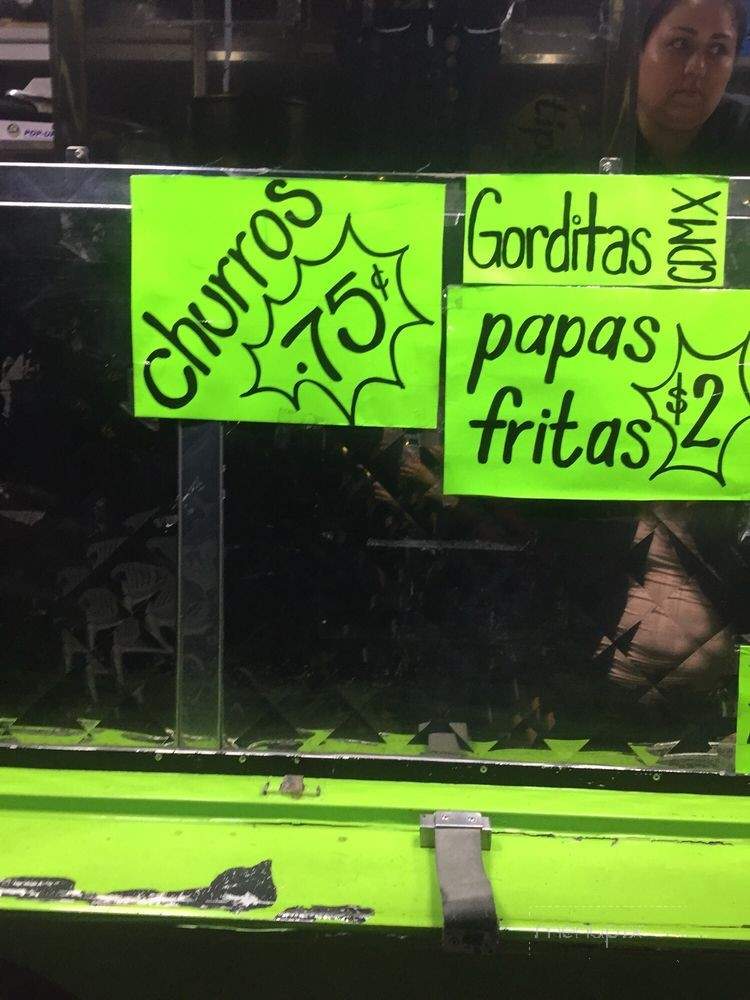 churros
.75¢
Gorditas
CDMX
papas
fritas
$2
POP-U